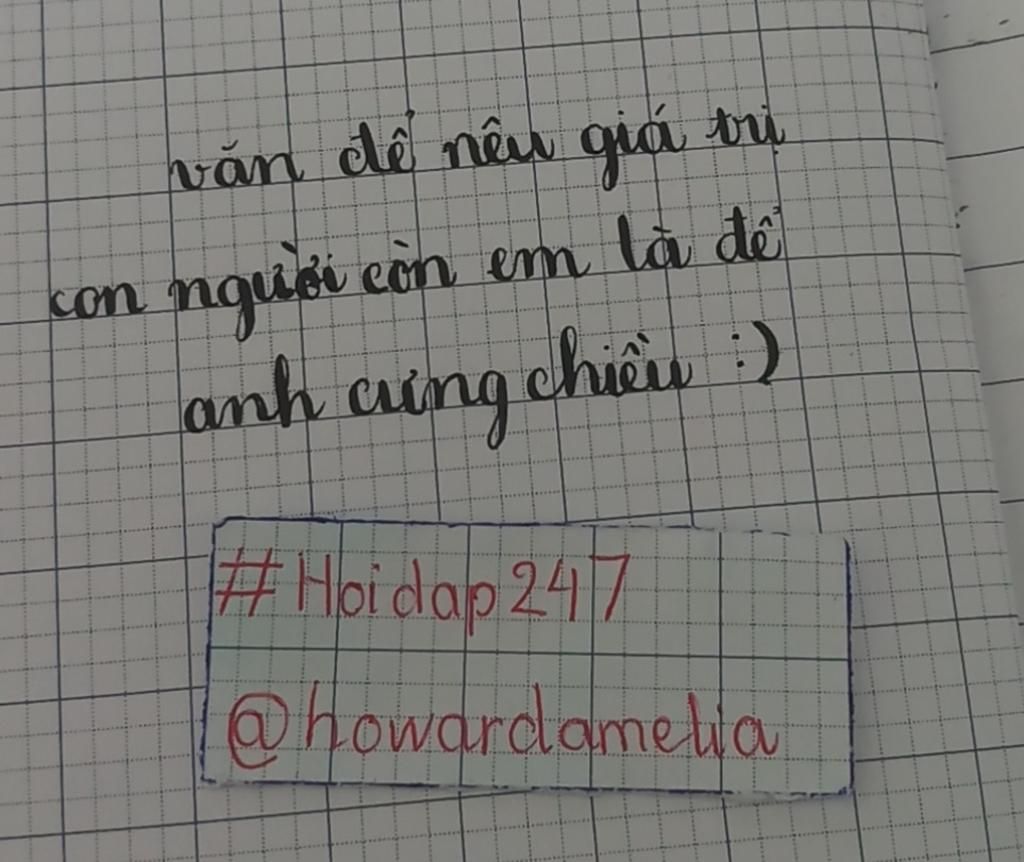 văn để nêu giá trị
con người còn em là để
anh cưng chiều :)
#Hoidap247
@howardamelia